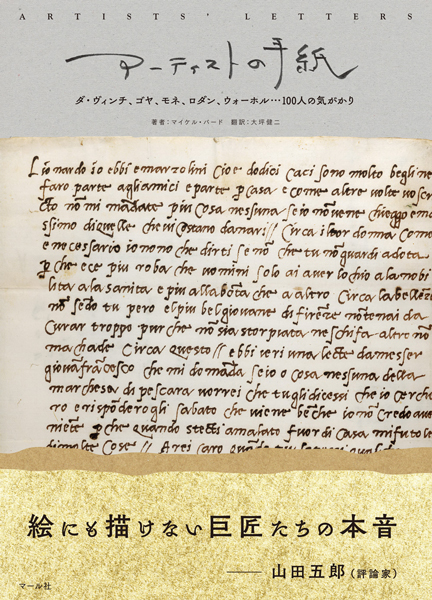 ARTISTS' LETTERS
アーティストの手紙
ダ・ヴィンチ、ゴヤ、モネ、ロダン、ウォーホル…100人の気がかり
著者：マイケル・バード 翻訳：大坪健二
Lionardo io ebbi e marzolini cioe dodici caci sono molto begli ne
faro parte agliamici e parte p casa e come altre volte vo scri
cto nō mi mādate piu cosa nessuna se io nō ve ne chieggo e ma
ssimo di quelle che vi costano danari // Circa il tor donna come
e necessario io no no che dirti se nō che tu nō guardi a dota
p che e ce piu roba che uomini solo ai aver lochio alla nobi
lita ala sanita e piu alla bōta che a altro Circa la belleza
nō sēdo tu pero el piu bel giovane di firēze nō te nai da
curar troppo pur che nō sia storpiata ne schifa altro nō
ma chade Circa questo // ebbi ieri una lecte da messer
giovāfrācesco che mi domāda se io o cosa nessuna della
marchesa di pescara vorrei che tu gli dicessi che io cerche
ro e rispōderogli sabato che viene bēche io nō credo aver
niēte p che quando stecti amalato fuor di casa mi fu tolo
di molte cose // Arei caro
絵にも描けない巨匠たちの本音
── 山田五郎（評論家）
マール社